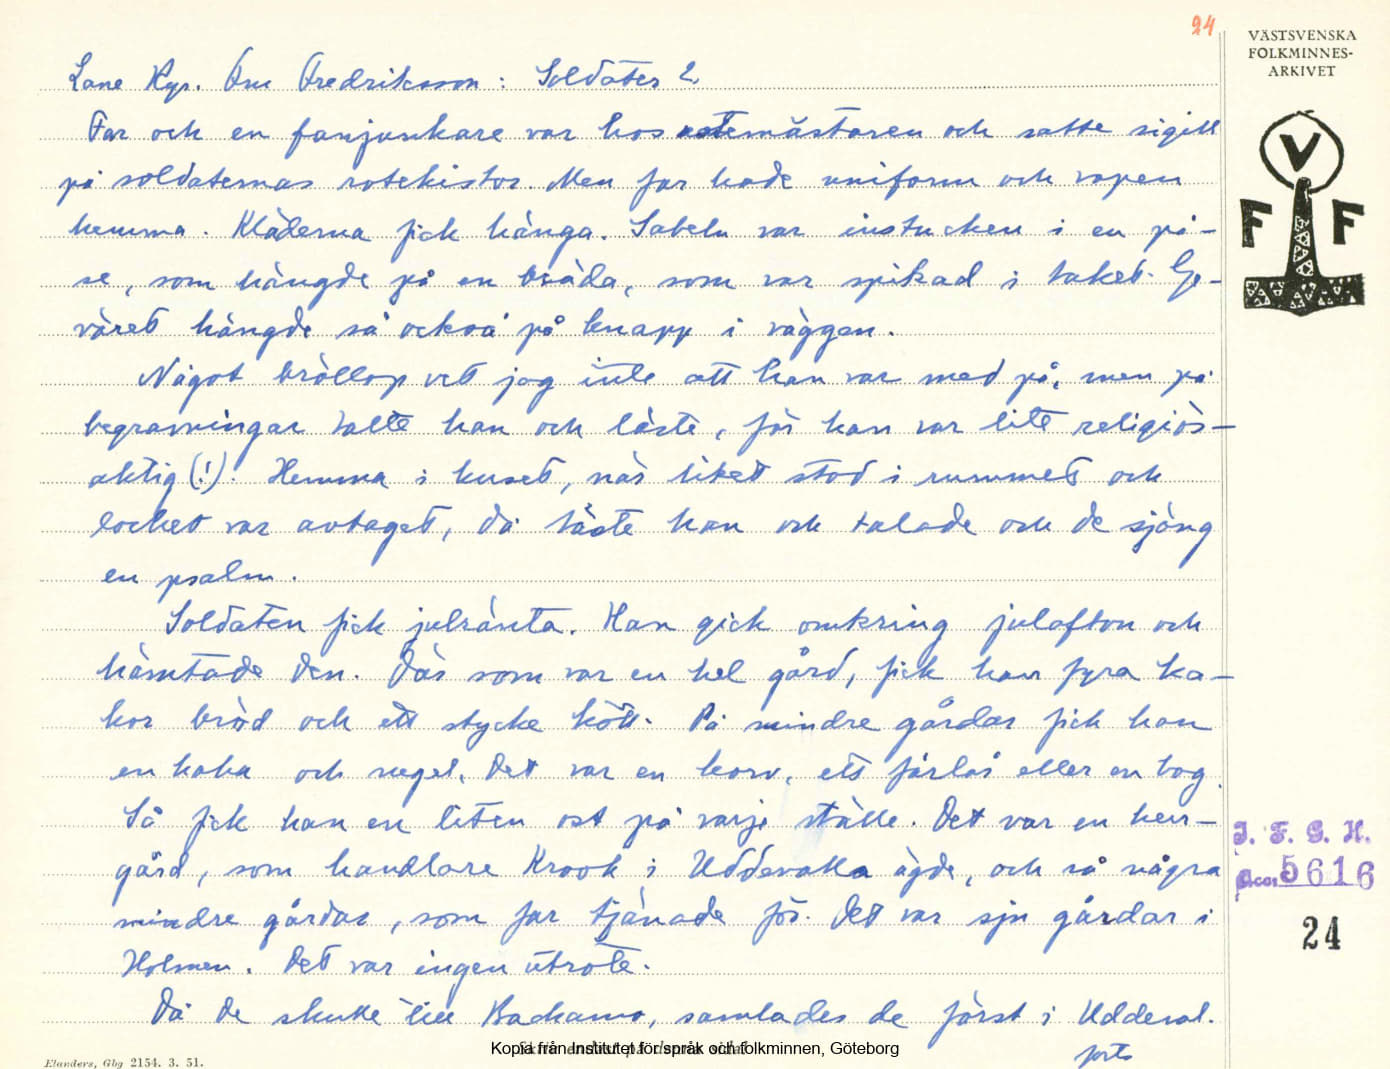 24
VÄSTSVENSKA
FOLKMINNES-
ARKIVET
V
F F
Lane Ryr. Fredriksson: Soldater 2
Far och en fanjunkare var hos rotemästaren och satte sigill
på soldaternas rotekistor. Men far hade uniform och vapen
hemma. Kläderna fick hänga. Sabeln var instucken i en på-
se, som hängde på en bräda, som var spikad i taket. Ge-
väret hängde så också på knapp i väggen.
Något bröllop vet jag inte att han var med på, men på
begravningar talte han och läste, för han var lite religiös-
aktig (!). Hemma i huset, när liket stod i rummet och
locket var avtaget, då läste han och talade och de sjöng
en psalm.
Soldaten fick julränta. Han gick omkring julafton och
hämtade den. Där som var en hel gård, fick han fyra ka-
kor bröd och ett stycke kött. På mindre gårdar fick han
en kaka och sugel. Det var en korv, ett fårlår eller en bog.
Så fick han en liten ost på varje ställe. Det var en herr-
gård, som handlare Krook i Uddevalla ägde, och så några
mindre gårdar, som far tjänade för. Det var sju gårdar i
Holmen. Det var ingen utrote.
Då de skulle till Backamo, samlades de först i Uddeval.
forts
I. F. G. H.
Acc. 5616
24
Kopia från Institutet för språk och folkminnen, Göteborg
Elanders, Gbg 2154. 3. 51.